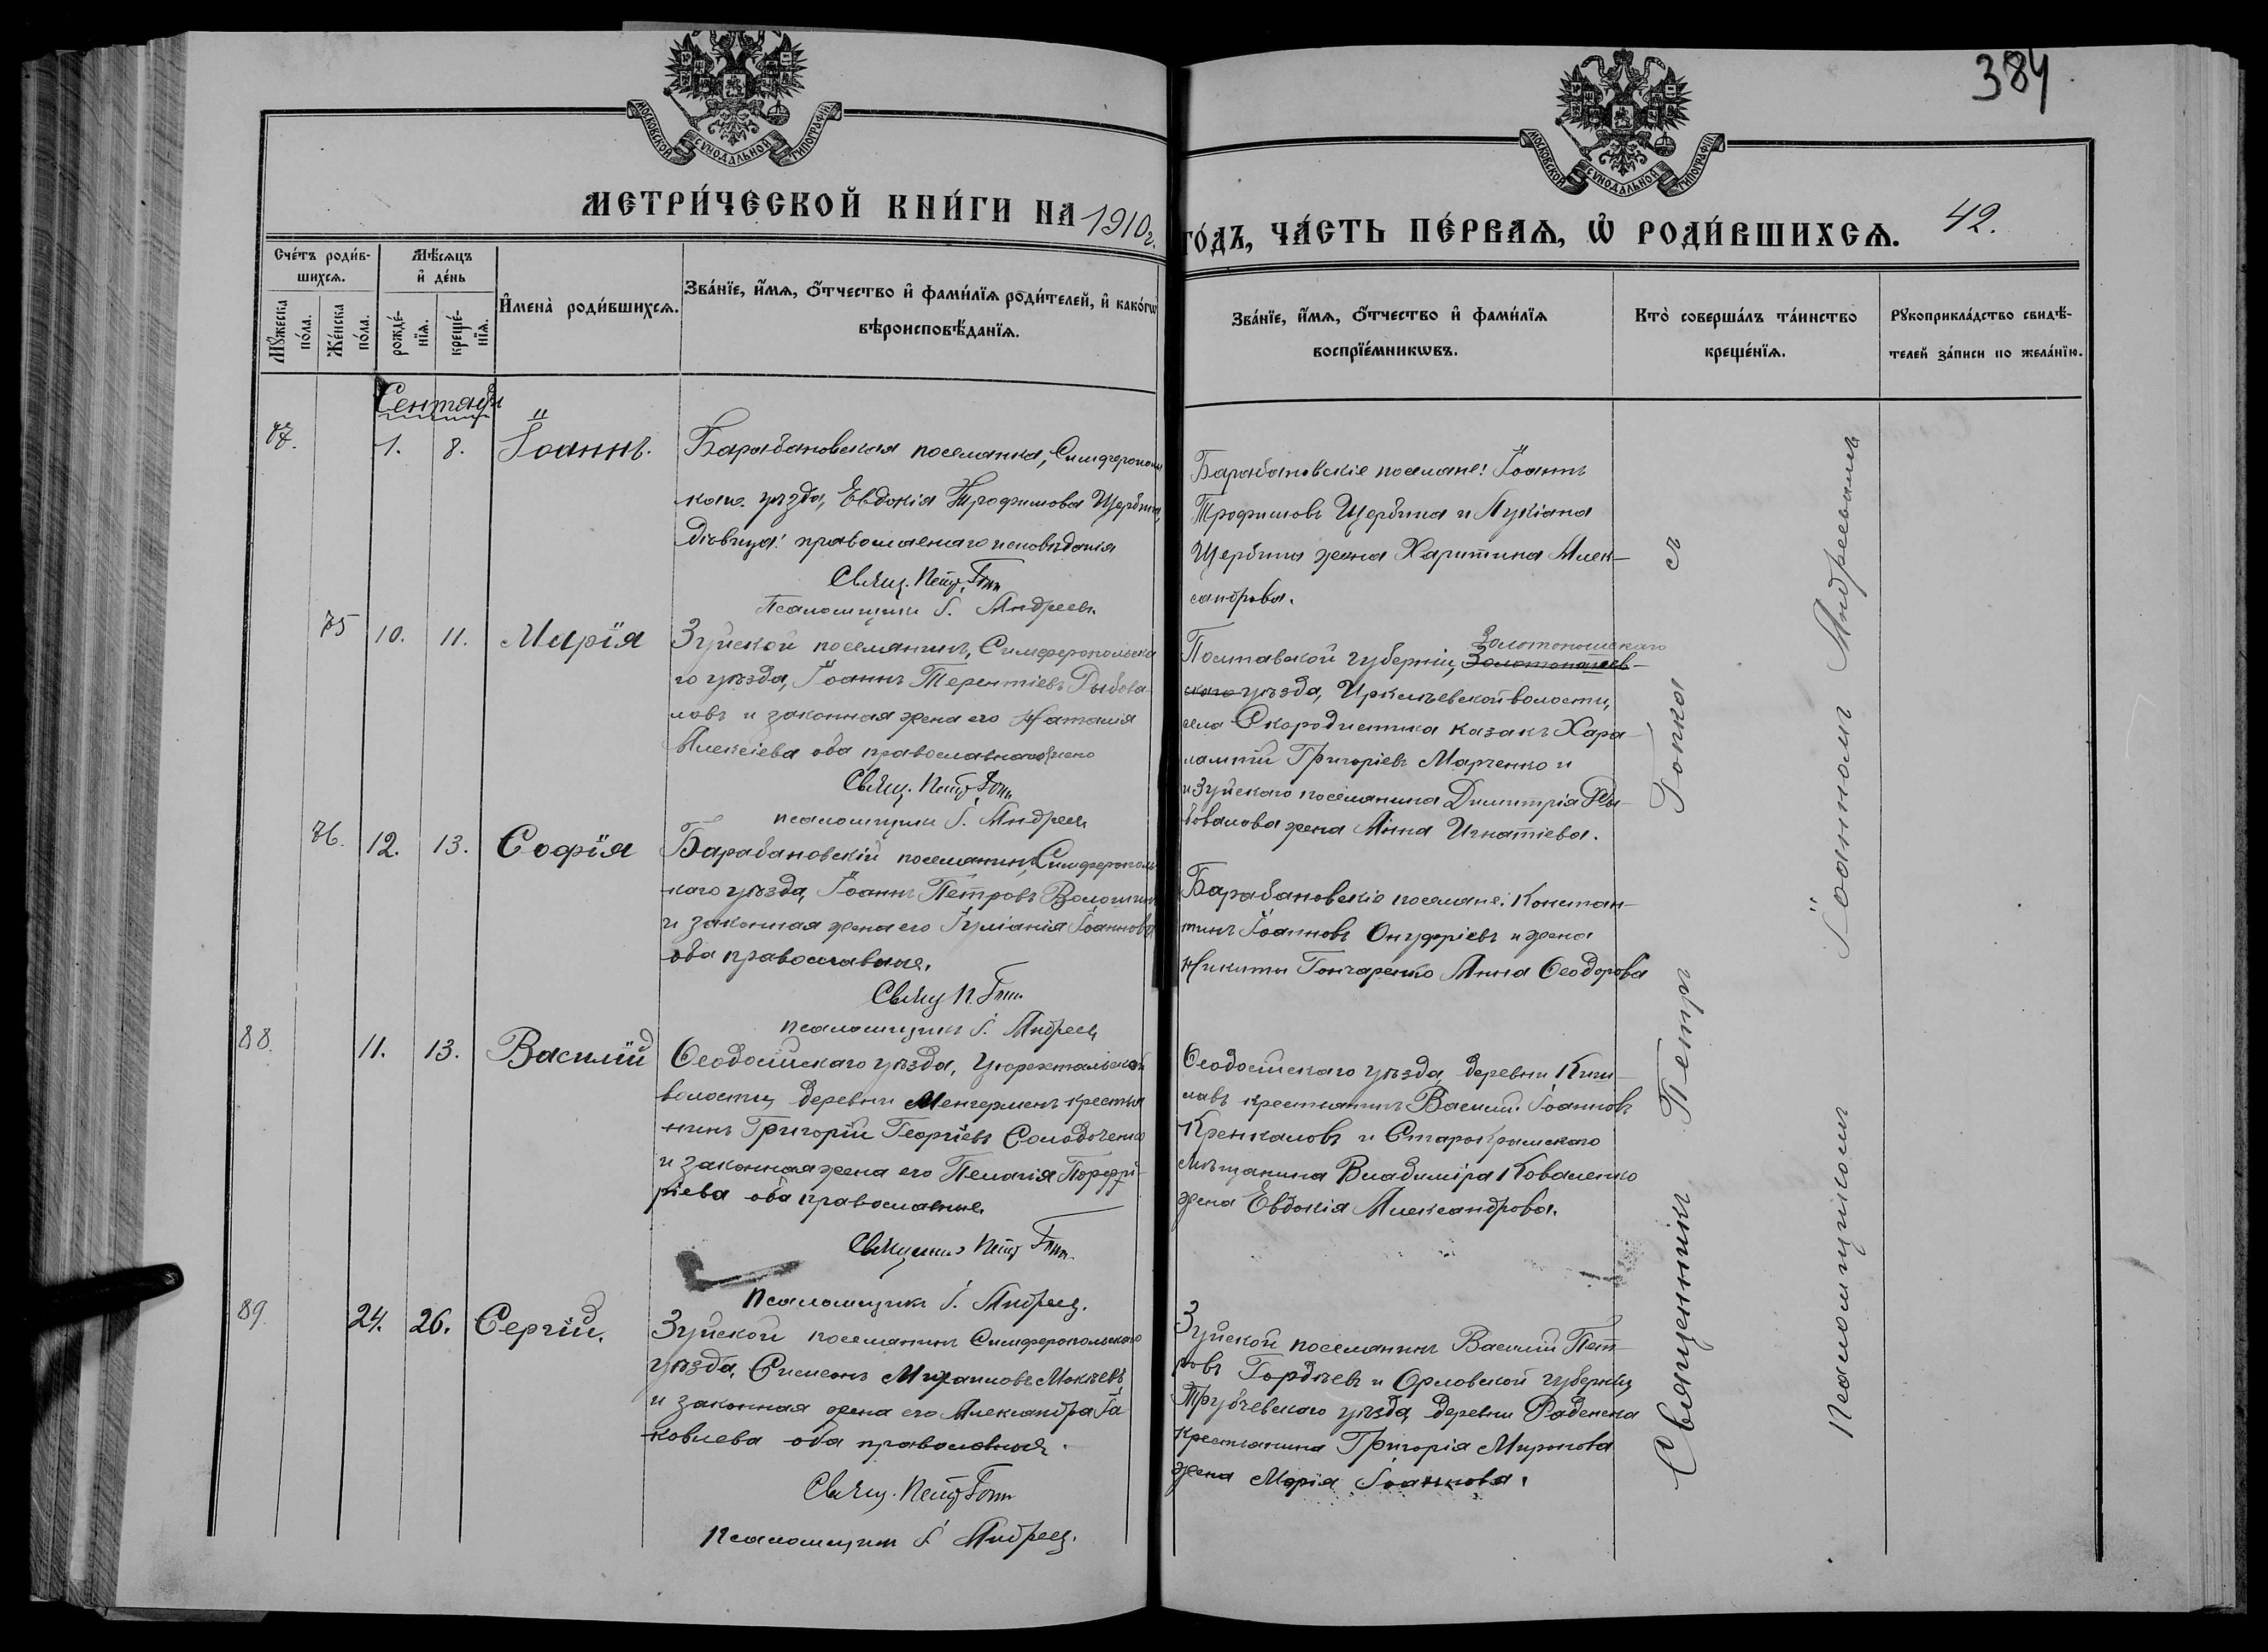 384
МОСКОВСКОЙ СѴНОДАЛЬНОЙ ТИПОГРАФІИ
МОСКОВСКОЙ СѴНОДАЛЬНОЙ ТИПОГРАФІИ
МЕТРИ́ЧЕСКОЙ КНИ́ГИ НА 1910г.
ГО́ДЪ, ЧА́СТЬ ПЕ́РВАѦ, Ѡ҆ РОДИ́ВШИХСѦ. 42.
Сче́тъ роди́в-
шихсѧ.
Мѣ́сѧцъ
и҆ де́нь
Мꙋ́жеска по́ла.
Же́нска по́ла.
рожде́-
нїѧ.
креще́-
нїѧ.
И҆мена̀ роди́вшихсѧ.
Зва́нїе, и҆́мѧ, ѻ҆́тчество и҆ фами́лїѧ роди́телей, и҆ како́гѡ
вѣроисповѣ́данїѧ.
Зва́нїе, и҆́мѧ, ѻ҆́тчество и҆ фами́лїѧ
воспрїе́мникѡвъ.
Кто̀ соверша́лъ та́инство
креще́нїѧ.
Рꙋкоприкла́дство свидѣ́-
телей за́писи по жела́нїю.
Сентябрь
87. 1. 8. Іоаннъ.
Барабановская поселянка, Симферополь
каго уѣзда, Евдокія Трофимова Щербина,
дѣвица: православнаго исповѣданія
Свящ. Петр
Псаломщикъ І. Андреев.
Барабановскіе поселяне: Іоаннъ
Трофимовъ Щербина и Лукіана
Щербины жена Харитина Алек-
сандрова.
75 10. 11. Марія
Зуйской поселянинъ, Симферопольска
го уѣзда, Іоаннъ Терентіевъ Рыбова
ловъ и законная жена его Наталія
Алексіева оба православнаго
Свящ. Петр
псаломщикъ І. Андреев
Золотоношскаго
Полтавской губерніи,
уѣзда, Иркліевской волости,
села Скородистика казакъ Хара-
лампій Григоріевъ Марченко и
и Зуйскаго поселянина Димитрія Ры-
бовалова жена Анна Игнатіева.
76. 12. 13. Софія
Барабановскій поселянинъ, Симферополь
каго уѣзда, Іоаннъ Петровъ Волошин
и законная жена его Іуліанія Іоаннова
оба православные.
Свящ П.
псаломщикъ І. Андреев
Барабановскіе поселяне: Констан-
тинъ Іоанновъ Онуфріевъ и жена
Никиты Гончаренко Анна Ѳеодорова
88. 11. 13. Василій
Ѳеодосійскаго уѣзда, Цюрехтальской
волости, деревни Менгерменъ крестья
нинъ Григорій Георгіевъ Солодоченко
и законная жена его Пелагія Порфи-
ріева оба православные.
Священикъ Петр
Псаломщикъ І. Андреев.
Ѳеодосійскаго уѣзда, деревни Киш-
лавъ крестьянинъ Василій Іоанновъ
Кренкаловъ и Старокрымскаго
мѣщанина Владиміра Коваленко
жена Евдокія Александрова.
89 24. 26. Сергій.
Зуйской поселянинъ Симферопольскаго
уѣзда, Симеонъ Михаиловъ Мокѣевъ
и законная жена его Александра Іа
ковлева оба православныя.
Свящ. Петр
Псаломщикъ І Андреев.
Зуйской поселянинъ Василій Пет-
ровъ Гордѣевъ и Орловской губерніи
Трубчевскаго уѣзда, деревни Раденска
крестьянина Григорія Миронова
жена Марія Іоаннова.
Священникъ Петръ съ
Псаломщикомъ Іоанномъ Андреевымъ